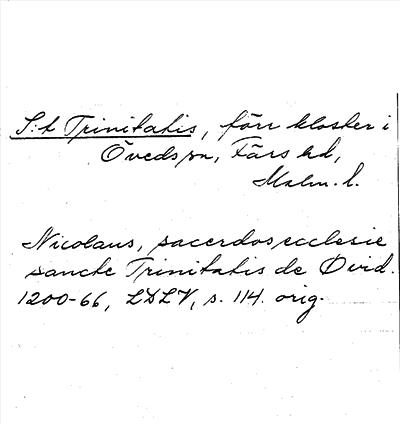 S:t Trinitatis, förr kloster i
Övedspn, Färs hd,
Malm. l.
Nicolaus, sacerdos ecclesie
sancte Trinitatis de Øvid.
1200-66, LDLV, s. 114. orig.